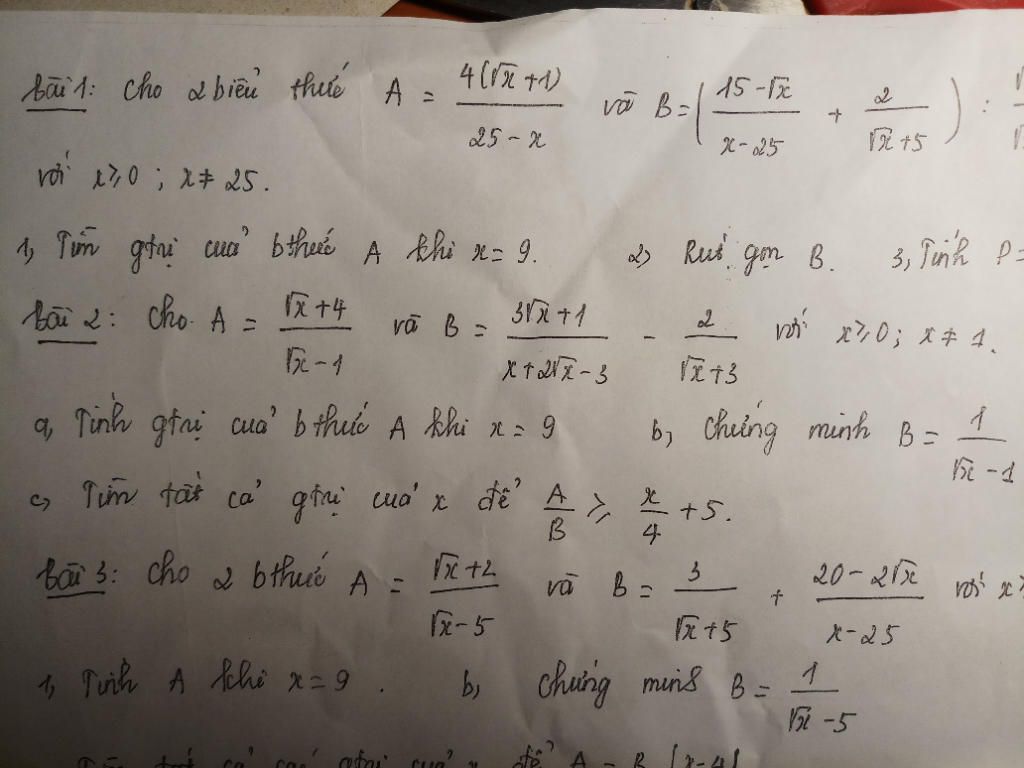 Bài 1: Cho 2 biểu thức A = 4(√x + 1) / (25 - x) và B = ( (15 - √x) / (x - 25) + 2 / (√x + 5) ) :
với x ≥ 0 ; x ≠ 25.
1, Tìm gtrị của bthức A khi x = 9. 2, Rút gọn B. 3, Tính P =
Bài 2: Cho A = (√x + 4) / (√x - 1) và B = (3√x + 1) / (x + 2√x - 3) - 2 / (√x + 3) với x ≥ 0 ; x ≠ 1.
a, Tính gtrị của bthức A khi x = 9 b, Chứng minh B = 1 / (√x - 1)
c, Tìm tất cả gtrị của x để A / B ≥ x / 4 + 5.
Bài 3: Cho 2 bthức A = (√x + 2) / (√x - 5) và B = 3 / (√x + 5) + (20 - 2√x) / (x - 25) với x
1, Tính A khi x = 9. b, Chứng minh B = 1 / (√x - 5)
Tìm tất cả các gtrị của x để A = B |x - 4|